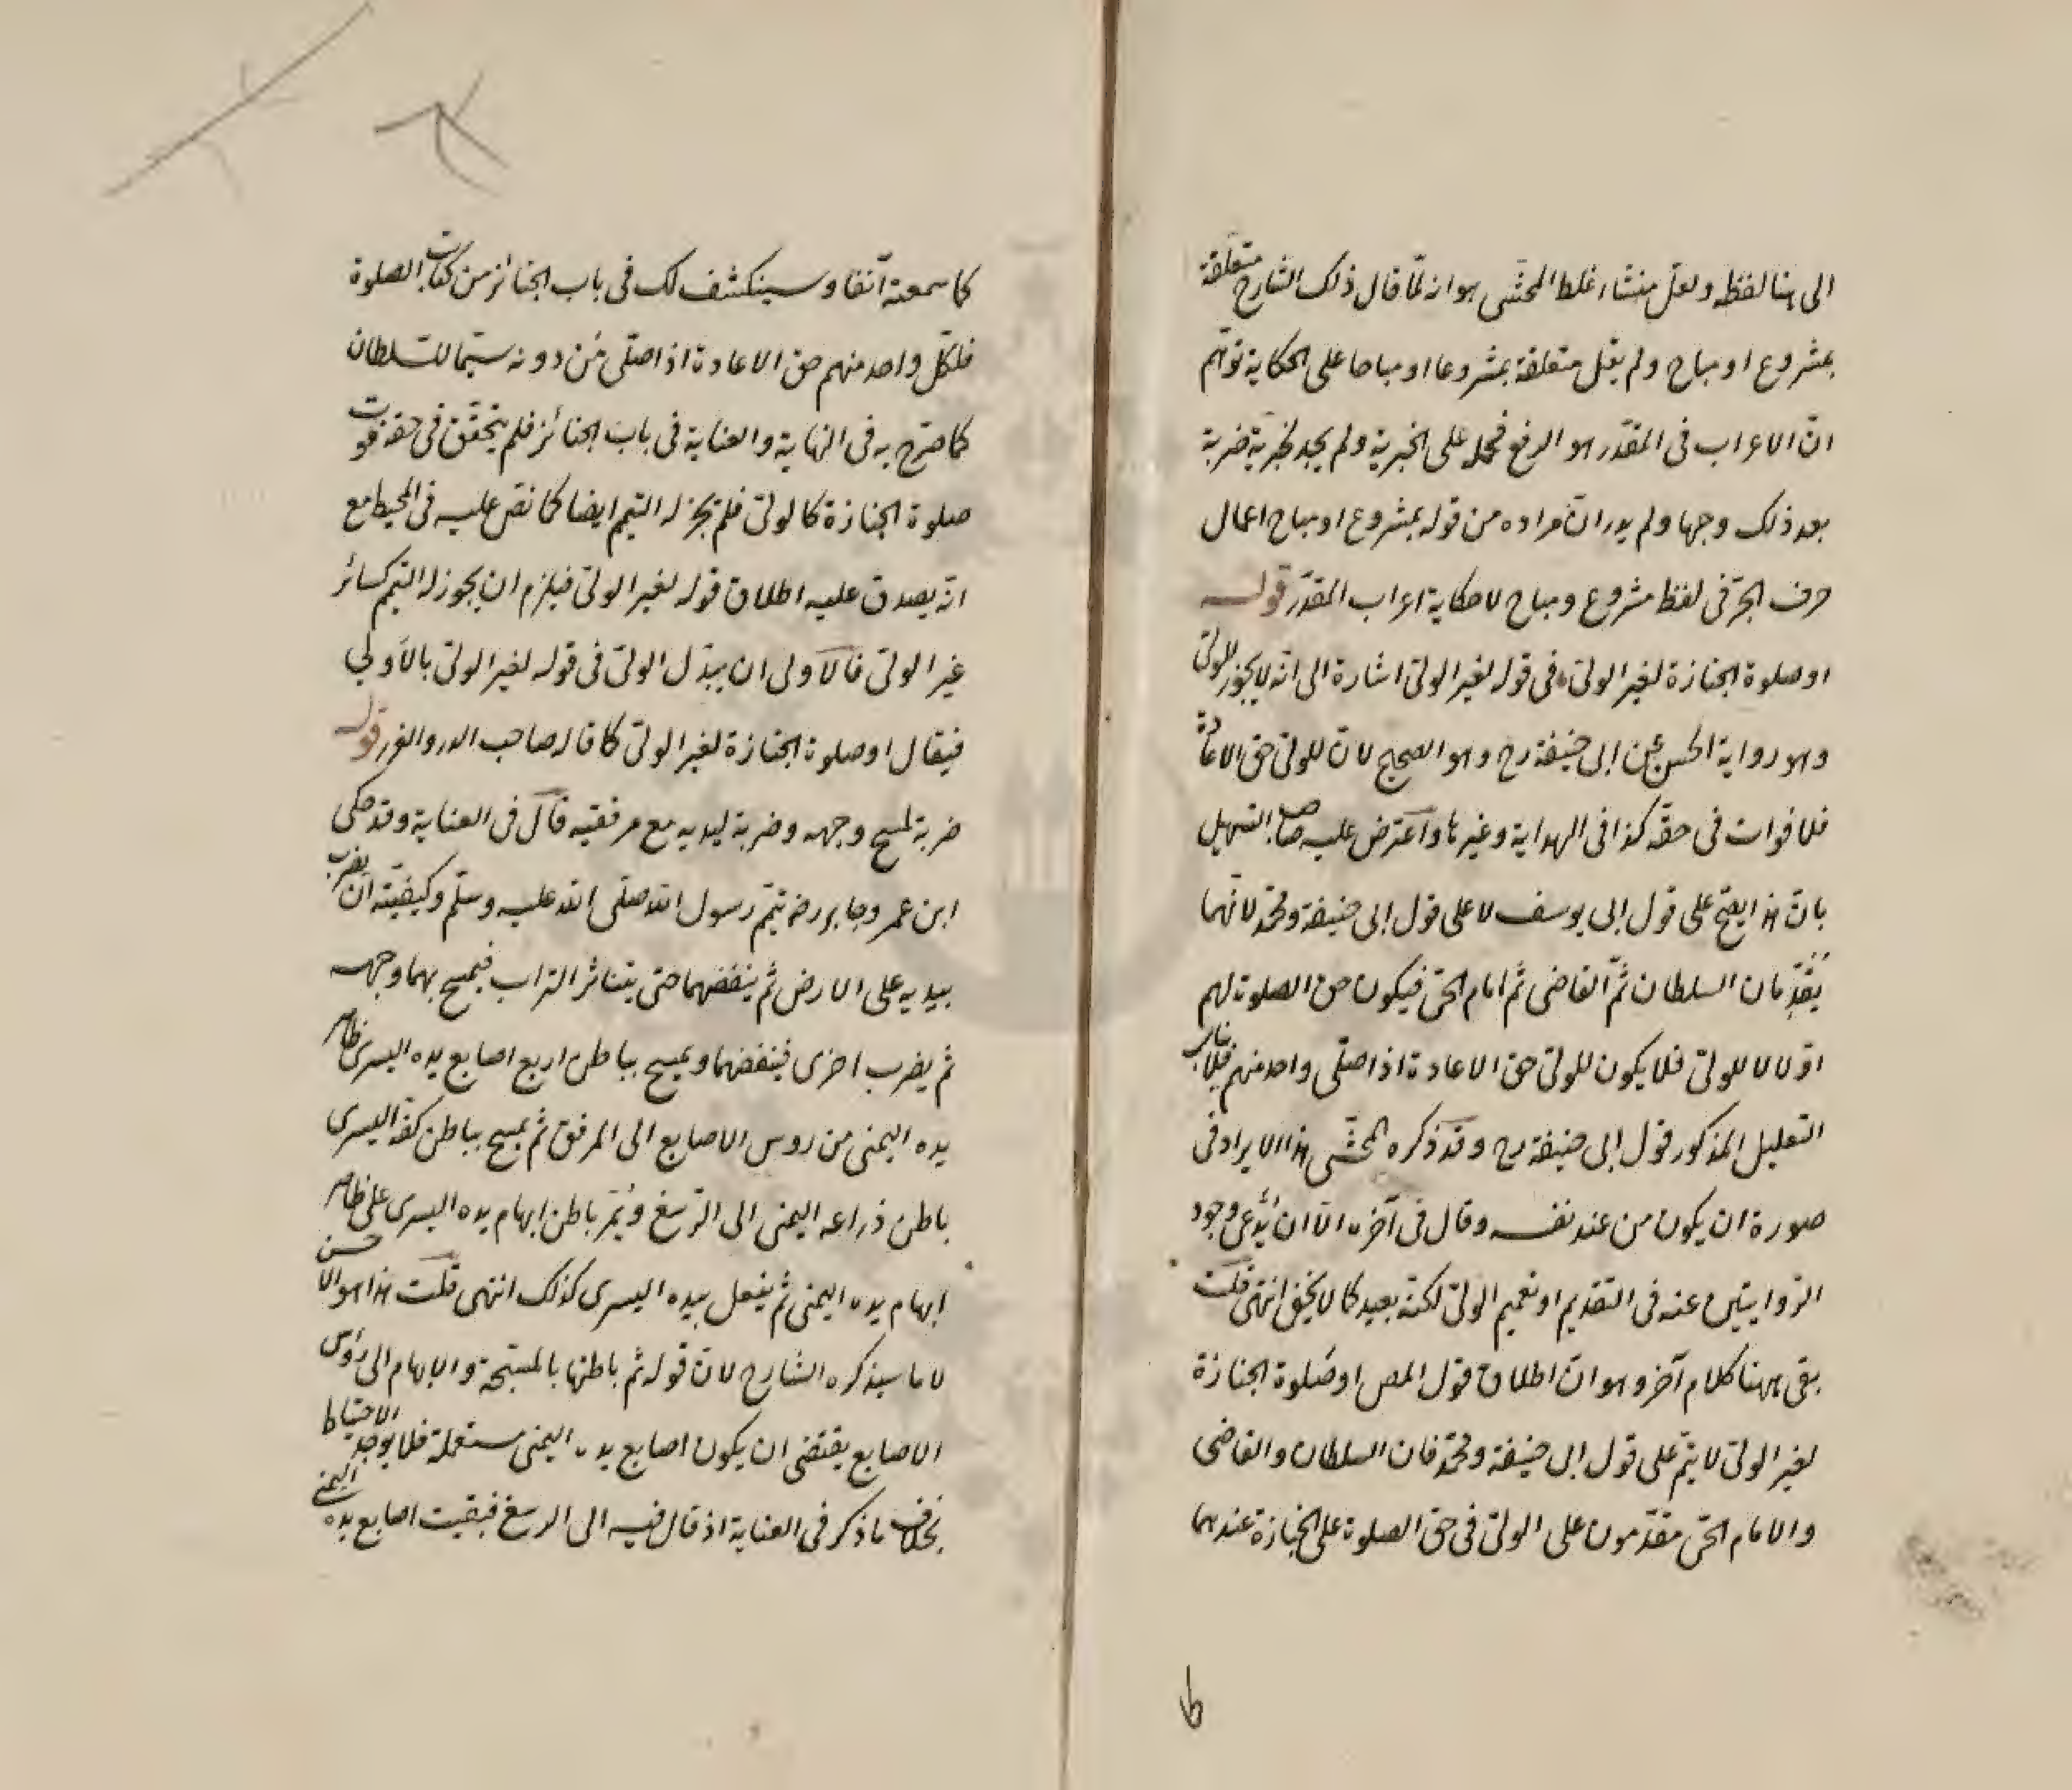 الى هنا لفظه ولعل منشاء غلط المحشى هو انه لمّا قال ذلك الشارح متعلقة
بمشروع او مباح ولم يقل متعلقة بمشروعا او مباحا على الحكاية توهّم
انّ الاعراب فى المقدّر هو الرفع فحمله على الخبرية ولم يجد لخبرية ضربة
بعد ذلك وجها ولم يدر انّ مراده من قوله بمشروع او مباح اعمال
حرف الجرّ فى لفظ مشروع ومباح لا حكاية اعراب المقدّر قوله
او صلوة الجنازة لغير الولىّ فى قوله لغير الولىّ اشارة الى انّه لا يجوز للولىّ
وهو رواية الحسن عن ابى حنيفة رح وهو الصحيح لانّ للولىّ حق الاعادة
فلا فوات فى حقّه كذا فى الهداية وغيرها واعترض عليه صاحب التسهيل
بانّ هذا يصحّ على قول ابى يوسف لا على قول ابى حنيفة ومحمّد لانّهما
يقدّمان السلطان ثمّ القاضى ثمّ امام الحىّ فيكون حق الصلوة لهم
اوّلا لا للولىّ فلا يكون للولىّ حق الاعادة اذا صلّى واحد منهم فلا يناسب
التعليل المذكور قول ابى حنيفة رح وقد ذكره المحشّى هذا الايراد فى
صورة ان يكون من عند نفسه وقال فى آخره الّا ان يدّعى وجود
الروايتين عنه فى التقديم او تعميم الولىّ لكنّه بعيد كما لا يخفى انتهى قلت
بقى ههنا كلام آخر وهو انّ اطلاق قول المص او صلوة الجنازة
لغير الولىّ لا يتمّ على قول ابى حنيفة ومحمّد فان السلطان والقاضى
والامام الحىّ مقدّمون على الولىّ فى حق الصلوة على الجنازة عندهما
كما سمعته آنفا وسينكشف لك فى باب الجنائز من كتاب الصلوة
فلكلّ واحد منهم حق الاعادة اذا صلّى مَن دونه سيّما للسّلطان
كما صرّح به فى النهاية والعناية فى باب الجنائز فلم يتحقّق فى حقه فوت
صلوة الجنازة كالولىّ فلم يجز له التيمم ايضا كما نصّ عليه فى المحيط مع
انّه يصدق عليه اطلاق قوله لغير الولىّ فيلزم ان يجوز له التيمم كسائر
غير الولىّ فالاولى ان يبدّل الولىّ فى قوله لغير الولىّ بالاَولى
فيقال او صلوة الجنازة لغير الولىّ كما قاله صاحب الدرر والغرر قوله
ضربة لمسح وجهه وضربة ليديه مع مرفقيه قال فى العناية وقد حكى
ابن عمر وجابر رض تيمّم رسول الله صلّى الله عليه وسلّم وكيفيّته ان يضرب
بيديه على الارض ثم ينفضهما حتى يتناثر التراب فيمسح بهما وجهه
ثم يضرب اخرى فينفضهما ويمسح بباطن اربع اصابع يده اليسرى ظاهر
يده اليمنى من روس الاصابع الى المرفق ثم يمسح بباطن كفّه اليسرى
باطن ذراعه اليمنى الى الرّسغ ويُمرّ باطن ابهام يده اليسرى على ظاهر
ابهام يده اليمنى ثم يفعل بيده اليسرى كذلك انتهى قلت هذا هو الاحسن
لا ما سيذكره الشارح لانّ قوله ثم باطنها بالمسبّحة والابهام الى رؤس
الاصابع يقتضى ان يكون اصابع يده اليمنى مستعملة فلا يوجد الاحتياط
بخلاف ما ذكر فى العناية اذ قال فيه الى الرسغ فبقيت اصابع يده اليمنى